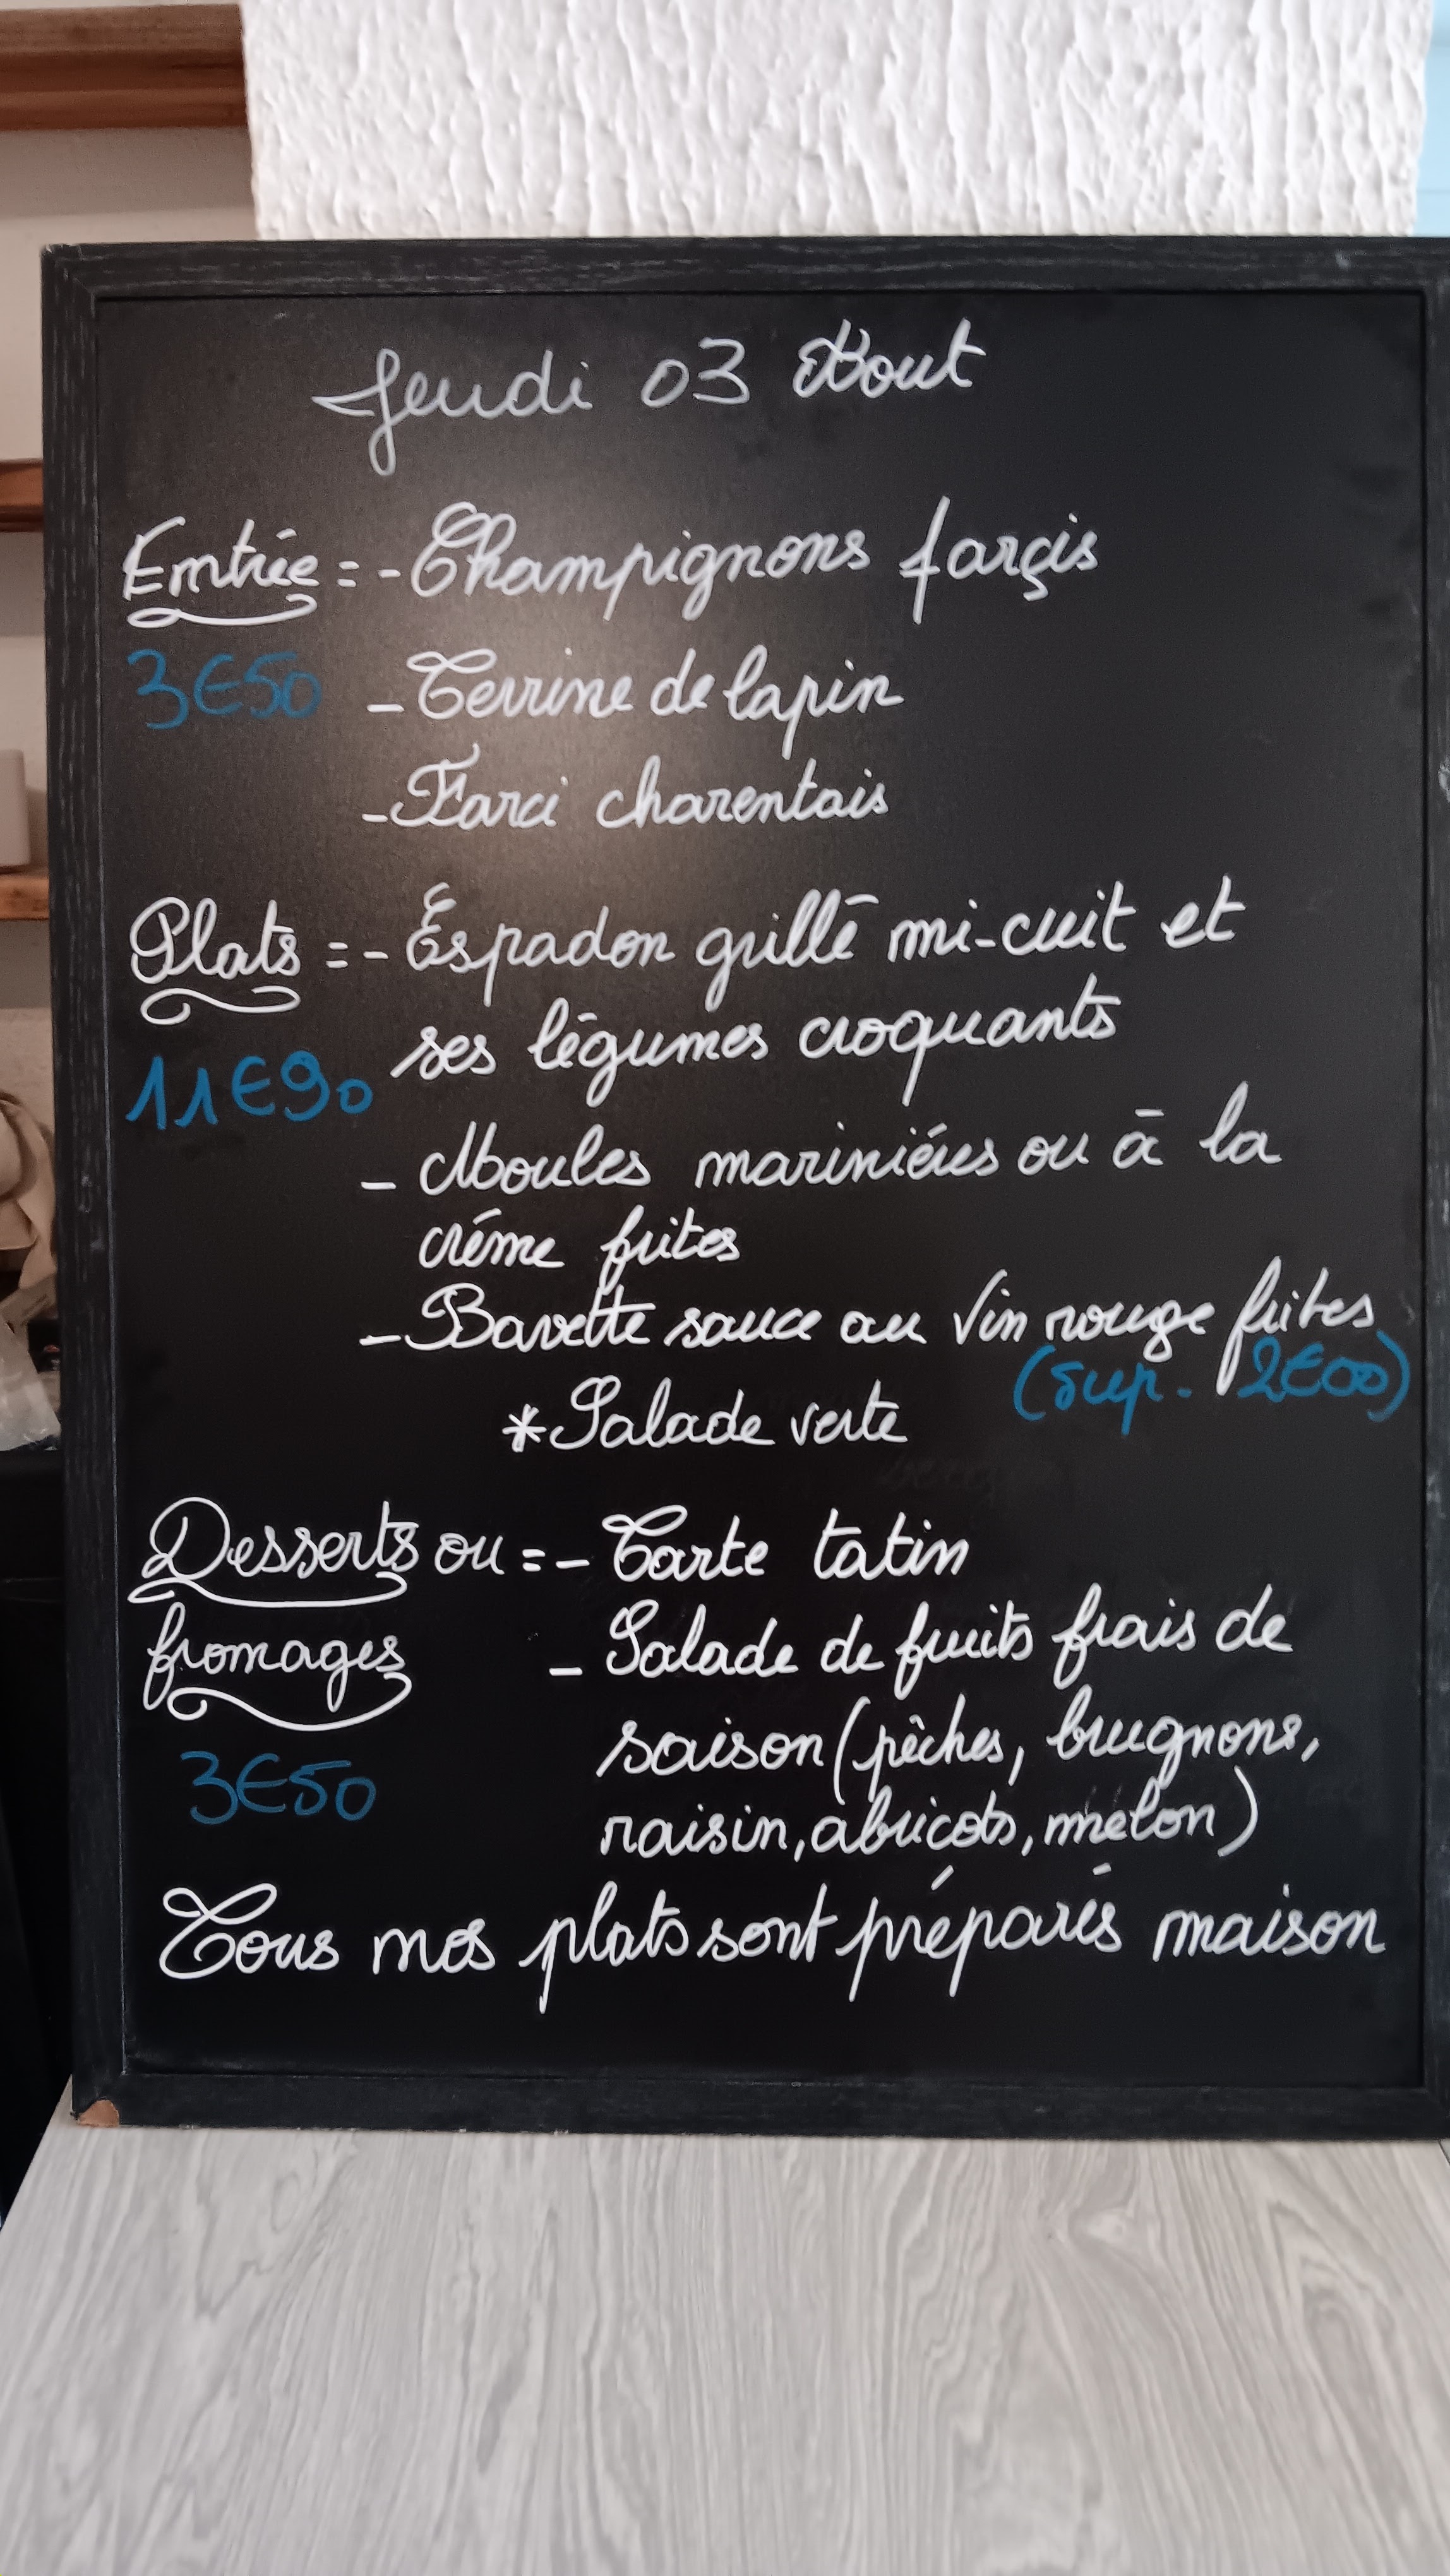 Jeudi 03 Aout
Entrée = - Champignons farçis
3€50 - Terrine de lapin
- Farci charentais
Plats = - Espadon grillé mi-cuit et
ses légumes croquants
11€90
- Moules mariniéres ou à la
créme frites
- Bavette sauce au Vin rouge frites
(sup. 2€00)
* Salade verte
Desserts ou = - Tarte tatin
fromages - Salade de fruits frais de
saison (pêches, brugnons,
3€50
raisin, abricots, melon)
Tous mes plats sont préparés maison